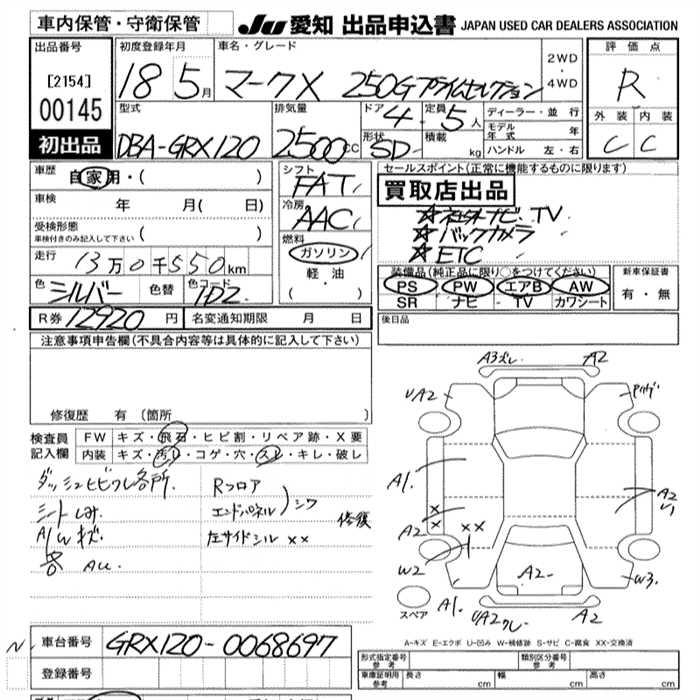 車内保管・守衛保管
JU 愛知 出品申込書 JAPAN USED CAR DEALERS ASSOCIATION
出品番号 初度登録年月 車名・グレード 2WD・4WD 評価点
[2154] 00145
18 5月 マークX 250G プライムセレクション R
型式 排気量 ドア 定員 ディーラー・並行 外装 内装
初出品 DBA-GRX120 2500cc 4 5人 モデル年式 年 C C
形状 SD 積載 kg ハンドル 左・右
車歴 自家用・( ) シフト FAT セールスポイント(正常に機能するものに限ります)
車検 年 月( 日) 冷房 AAC 買取店出品
☆社外ナビ、TV
受検形態 車検付きのみ記入して下さい ( ) 燃料 ガソリン ☆バックカメラ
☆ETC
走行 13万0千550km 軽油 ( ・ )
装備品(純正品に限り○をつけてください) 新車保証書
色 シルバー 色替 色コード 1D2 PS PW エアB AW 有・無
SR ナビ - TV カワシート
R券 12920円 名変通知期限 月 日 後日品
注意事項申告欄(不具合内容等は具体的に記入して下さい)
A3ズレ. A2
UA2
修復歴 有 (箇所 )
検査員記入欄 FW キズ・飛石・ヒビ割・リペア跡・X要
内装 キズ・汚レ・コゲ・穴・スレ・キレ・破レ
ダッシュヒビワレ各所. Rフロア
シートしみ エンドパネル )シワ 修復
A/Wキズ. 左サイドシル ××
A1. A2
A2 × × ××
W2 A2 W3.
A1. UA2 A2
スペア
A-キズ E-エクボ U-凹み W-補修跡 S-サビ C-腐食 XX-交換済
N. 車台番号 GRX120-0068697
登録番号
形式指定番号 参考 類別区分番号 参考
車庫証明用 参考 長さ cm 幅 cm 高さ cm